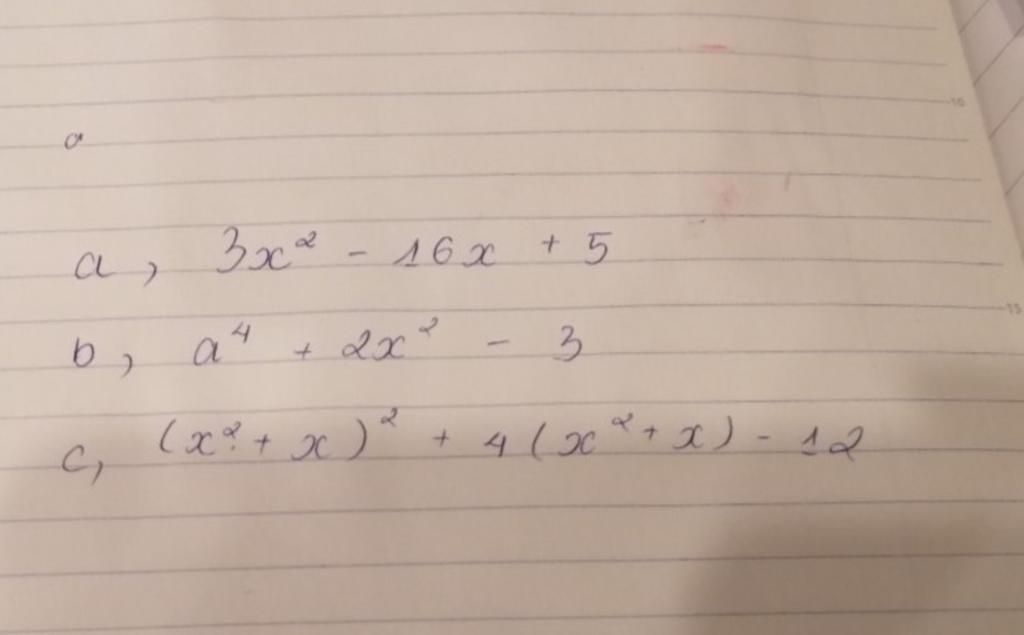 a
a, 3x² - 16x + 5
b, a⁴ + 2x² - 3
c, (x² + x)² + 4(x² + x) - 12
10
15